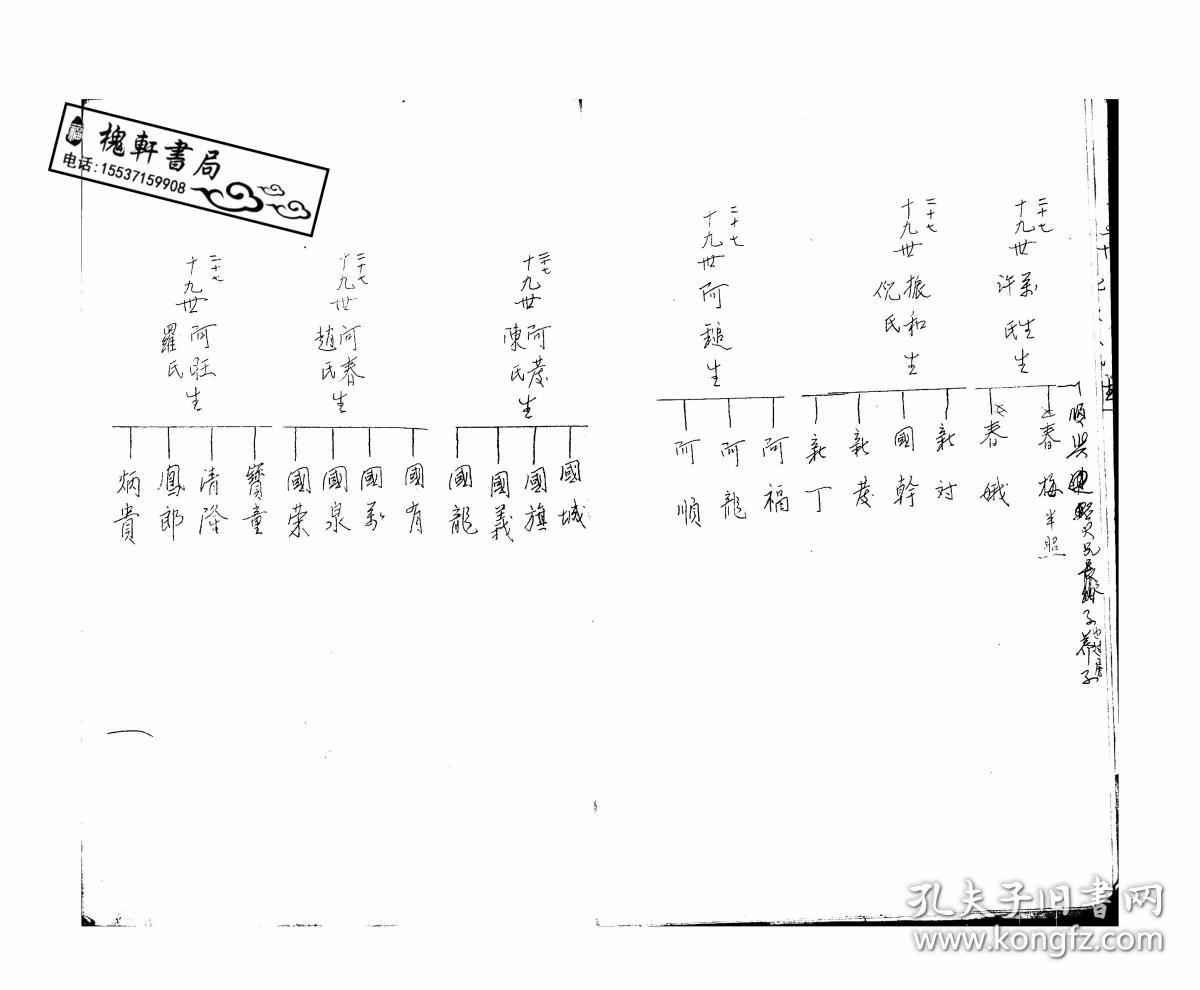 二十七
十九世
許氏
生
順興
春梅
半照
春娥
二十七
十九世
振和 生
倪氏
新対
國幹
新發
新丁
二十七
十九世阿鎚生
阿福
阿龍
阿順
二十七
十九世阿發生
陳氏
國城
國旗
國義
國龍
二十七
十九世阿春生
趙氏
國有
國泉
國荣
二十七
十九世阿旺生
羅氏
寶童
清隆
鳳郎
炳貴
福
槐軒書局
电话:15537159908
孔夫子旧书网
www.kongfz.com